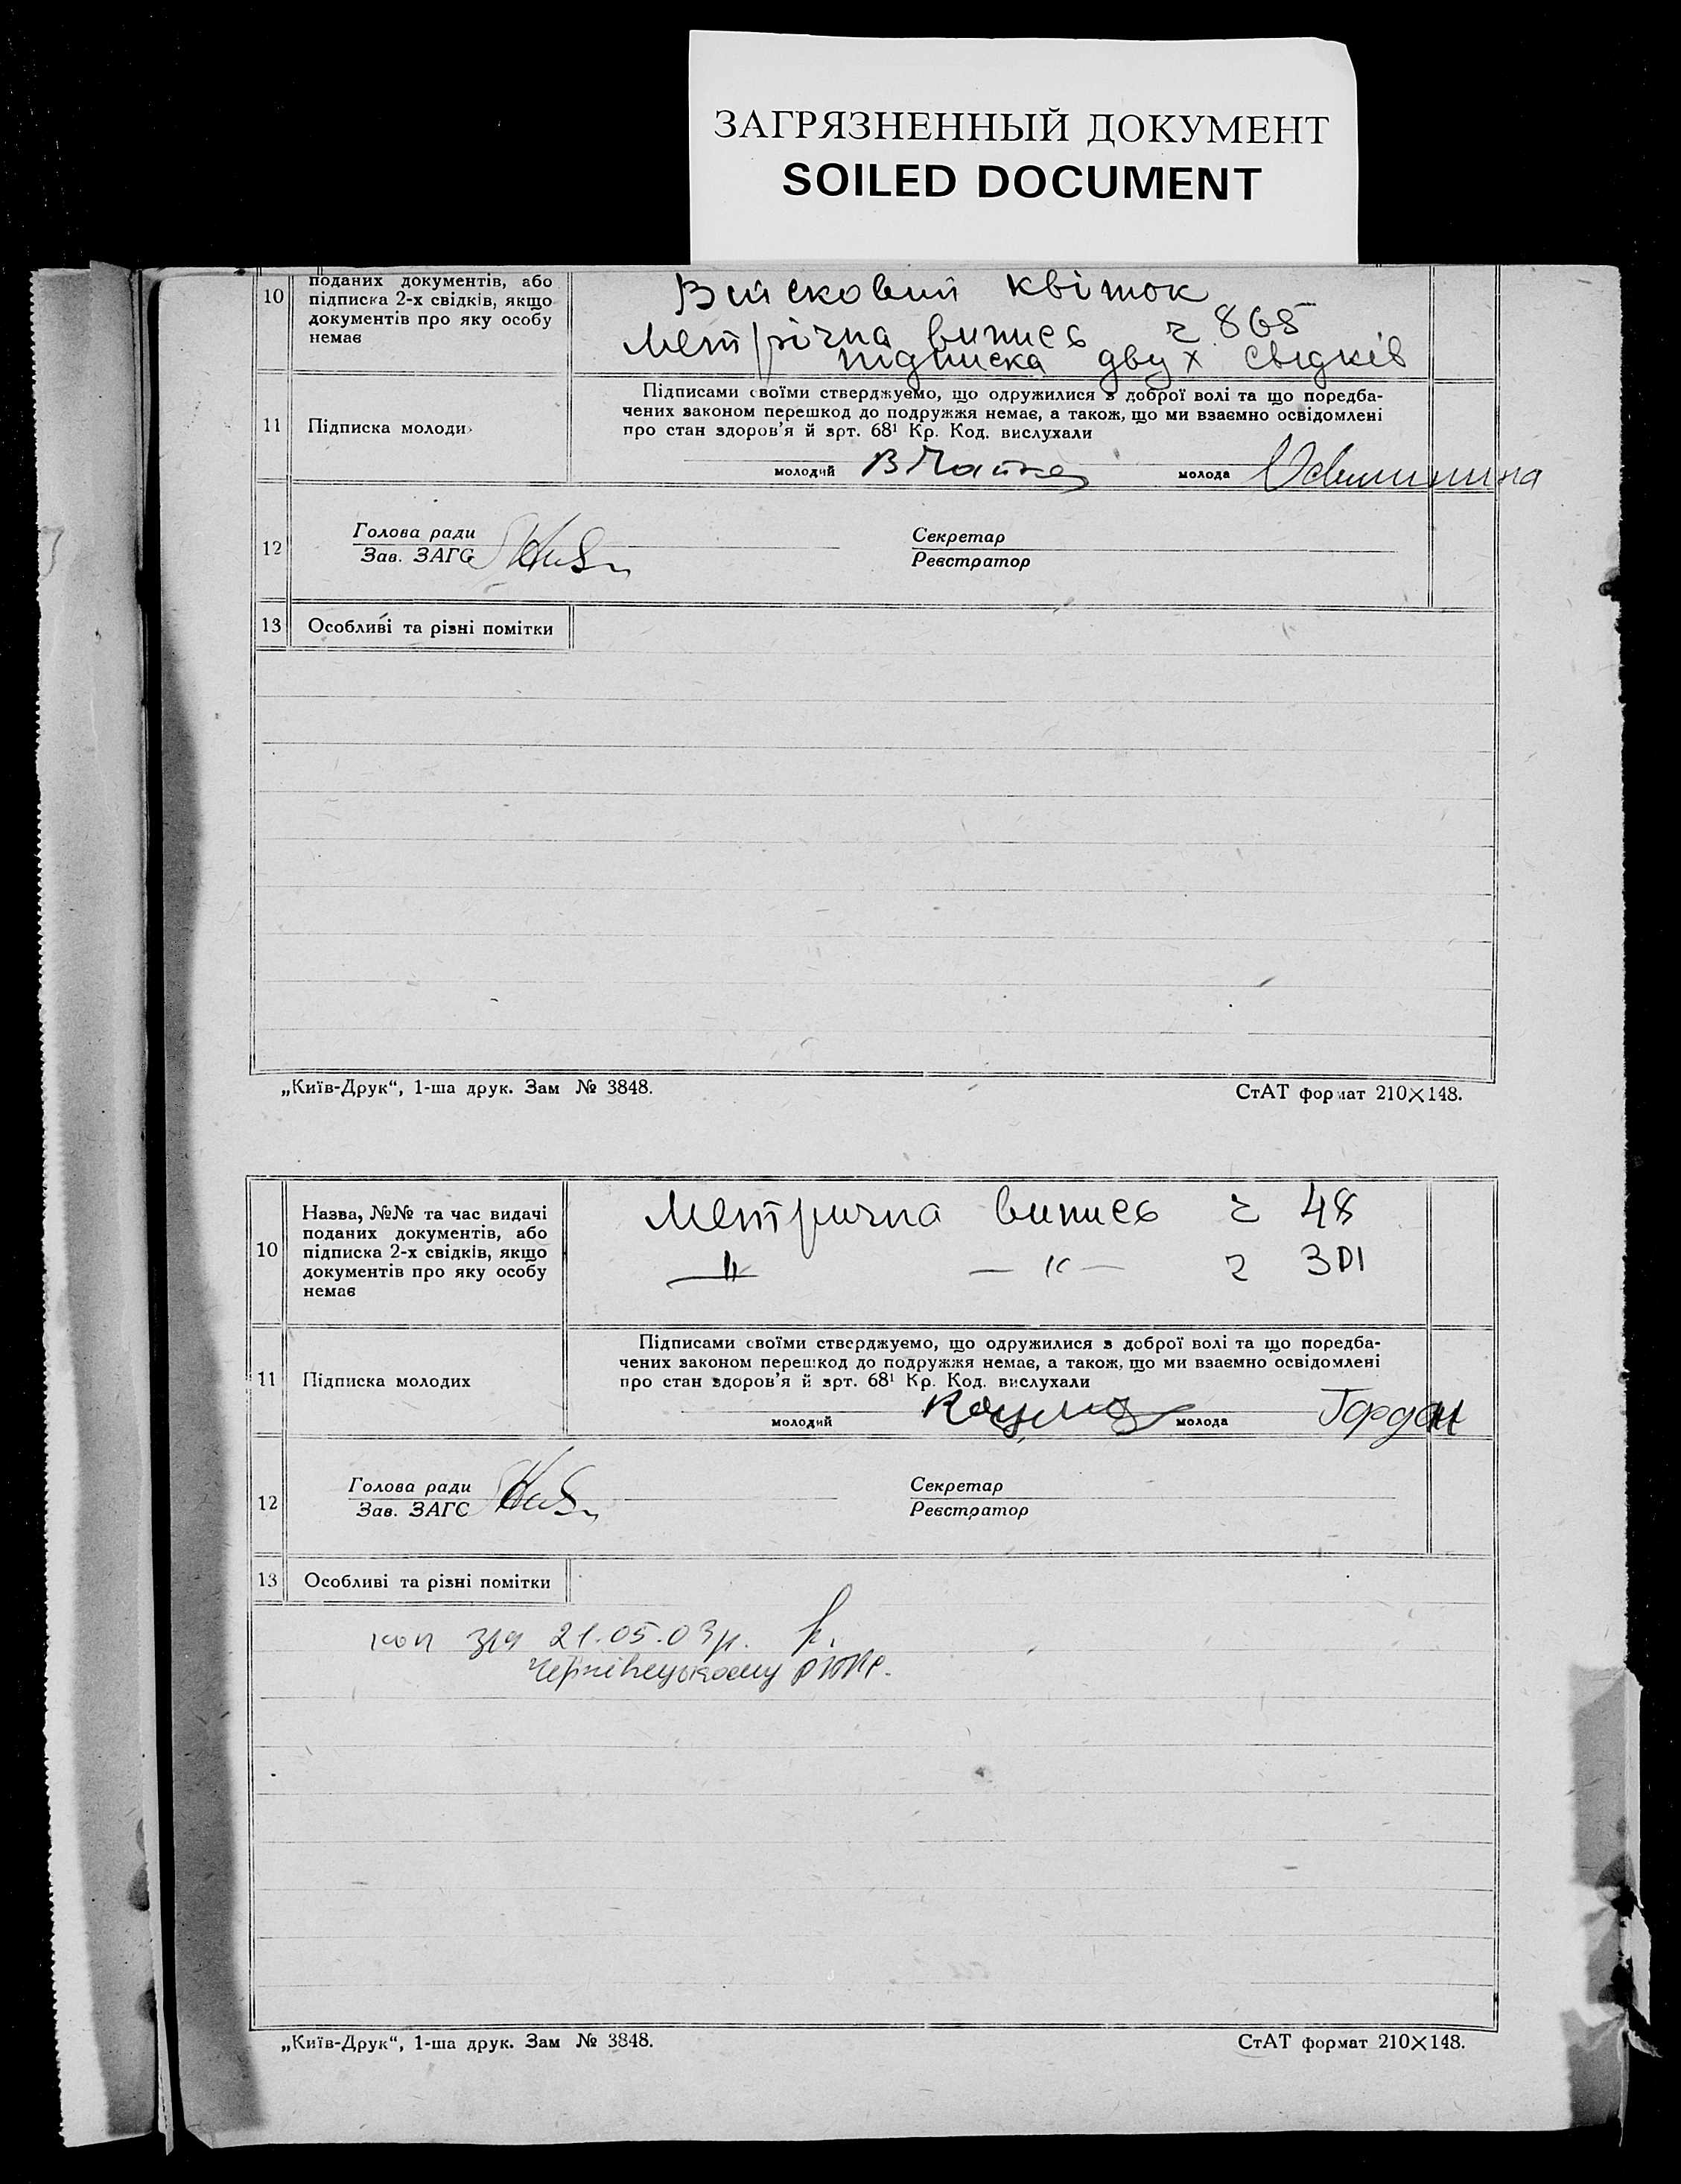 ЗАГРЯЗНЕННЫЙ ДОКУМЕНТ
SOILED DOCUMENT
10
поданих документів, або
підписка 2-х свідків, якщо
документів про яку особу
немає
Військовий квіток
Метрічна випись ч 868
підписка двух свідків
11
Підписка молоди
Підписами своїми стверджуємо, що одружилися з доброї волі та що поредба-
чених законом перешкод до подружжя немає, а також, що ми взаємно освідомлені
про стан здоров’я й арт. 68¹ Кр. Код. вислухали
молодий
молода
12
Голова ради
Зав. ЗАГС
Секретар
Реєстратор
13
Особливі та різні помітки
„Київ-Друк“, 1-ша друк. Зам № 3848.
СтАТ формат 210×148.
10
Назва, №№ та час видачі
поданих документів, або
підписка 2-х свідків, якщо
документів про яку особу
немає
Метрична випись ч 48
—"— —"— ч 301
11
Підписка молодих
Підписами своїми стверджуємо, що одружилися з доброї волі та що поредба-
чених законом перешкод до подружжя немає, а також, що ми взаємно освідомлені
про стан здоров’я й арт. 68¹ Кр. Код. вислухали
молодий
молода Гордон
12
Голова ради
Зав. ЗАГС
Секретар
Реєстратор
13
Особливі та різні помітки
коп 21.05.03р.
Чернівецькому
„Київ-Друк“, 1-ша друк. Зам № 3848.
СтАТ формат 210×148.